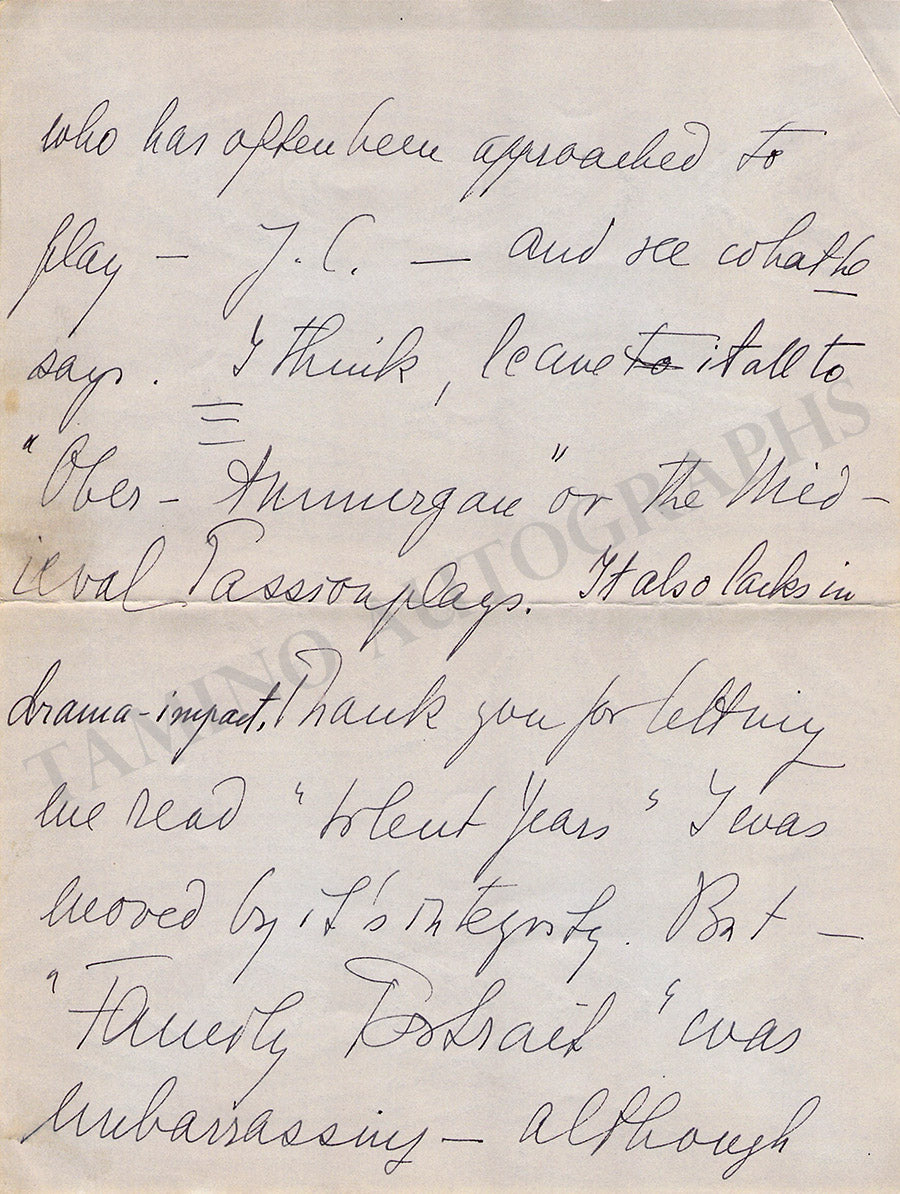 who has often been approached to
play — J.C. — and see what he
says. I think, leave to it all to
"Ober- Ammergau" or the Med-
ieval Passion plays. It also lacks in
drama-impact. Thank you for letting
me read "Silent Years" I was
moved by it's integrity. But —
"Family Portrait" was
embarrassing — although
TAMINO AUTOGRAPHS